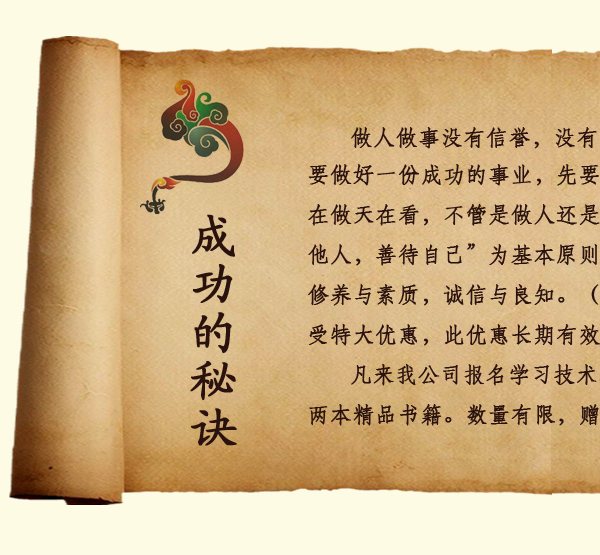 成功的秘诀
做人做事没有信誉，没有
要做好一份成功的事业，先要
在做天在看，不管是做人还是
他人，善待自己”为基本原则
修养与素质，诚信与良知。（
受特大优惠，此优惠长期有效
凡来我公司报名学习技术
两本精品书籍。数量有限，赠